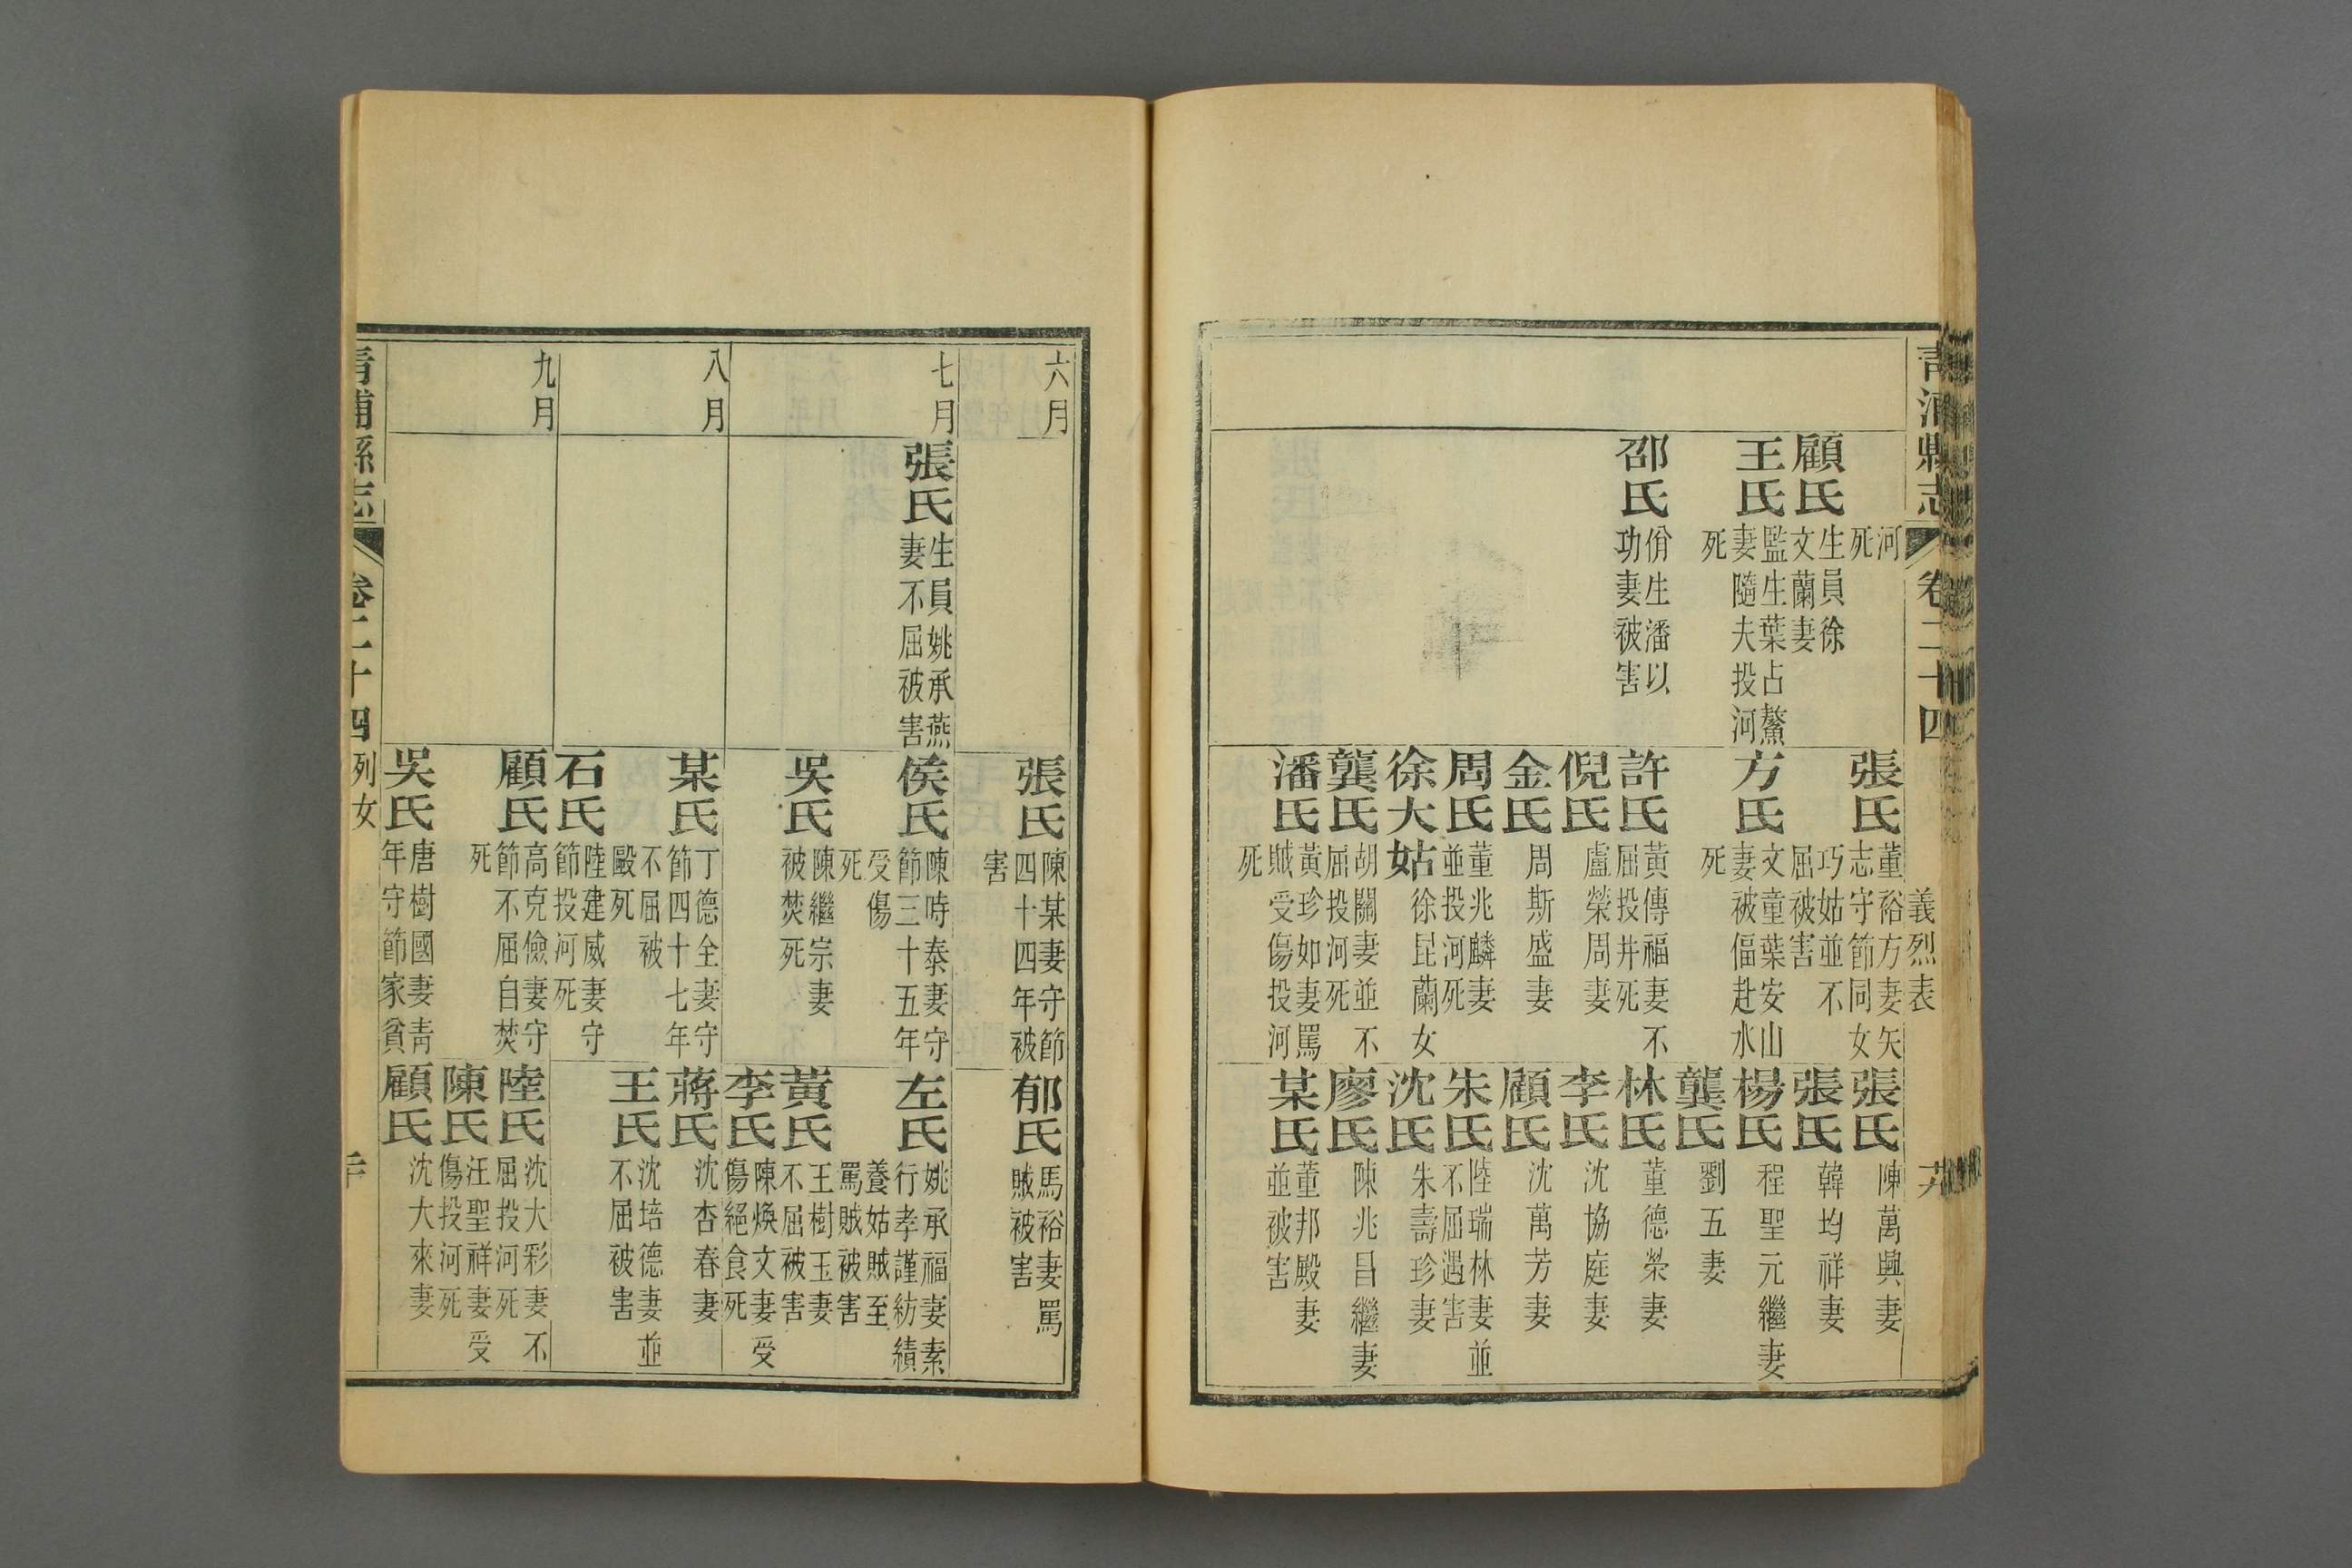 青浦縣志 卷二十四 義烈表
河
死
顧氏 生員徐
文蘭妻
王氏 監生葉占鰲
妻隨夫投河
死
邵氏 佾生潘以
功妻被害
張氏 董裕方妻矢
志守節同女
巧姑並不
屈被害
方氏 文童葉安山
妻被偪赴水
死
許氏 黃傳福妻不
屈投井死
倪氏 盧榮周妻
金氏 周斯盛妻
周氏 董兆麟妻
並投河死
徐大姑 徐昆蘭女
龔氏 胡關妻並不
屈投河死
潘氏 黃珍如妻罵
賊受傷投河
死
張氏 陳萬興妻
張氏 韓均祥妻
楊氏 程聖元繼妻
龔氏 劉五妻
林氏 董德榮妻
李氏 沈協庭妻
顧氏 沈萬芳妻
朱氏 陸瑞林妻並
不屈遇害
沈氏 朱壽珍妻
廖氏 陳兆昌繼妻
某氏 董邦殿妻
並被害
六月
七月
八月
九月
張氏 生員姚承燕
妻不屈被害
張氏 陳某妻守節
四十四年被
害
侯氏 陳時泰妻守
節三十五年
受傷
死
吳氏 陳繼宗妻
被焚死
某氏 丁德全妻守
節四十七年
不屈被
毆死
石氏 陸建威妻守
節投河死
顧氏 高克儉妻守
節不屈自焚
死
吳氏 唐樹國妻靑
年守節家貧
郁氏 馬裕妻罵
賊被害
左氏 姚承福妻素
行孝謹紡績
養姑賊至
罵賊被害
黃氏 王樹玉妻
不屈被害
李氏 陳煥文妻受
傷絕食死
蔣氏 沈杏春妻
王氏 沈培德妻並
不屈被害
陸氏 沈大彩妻不
屈投河死
陳氏 汪聖祥妻受
傷投河死
顧氏 沈大來妻
青浦縣志 卷二十四 列女